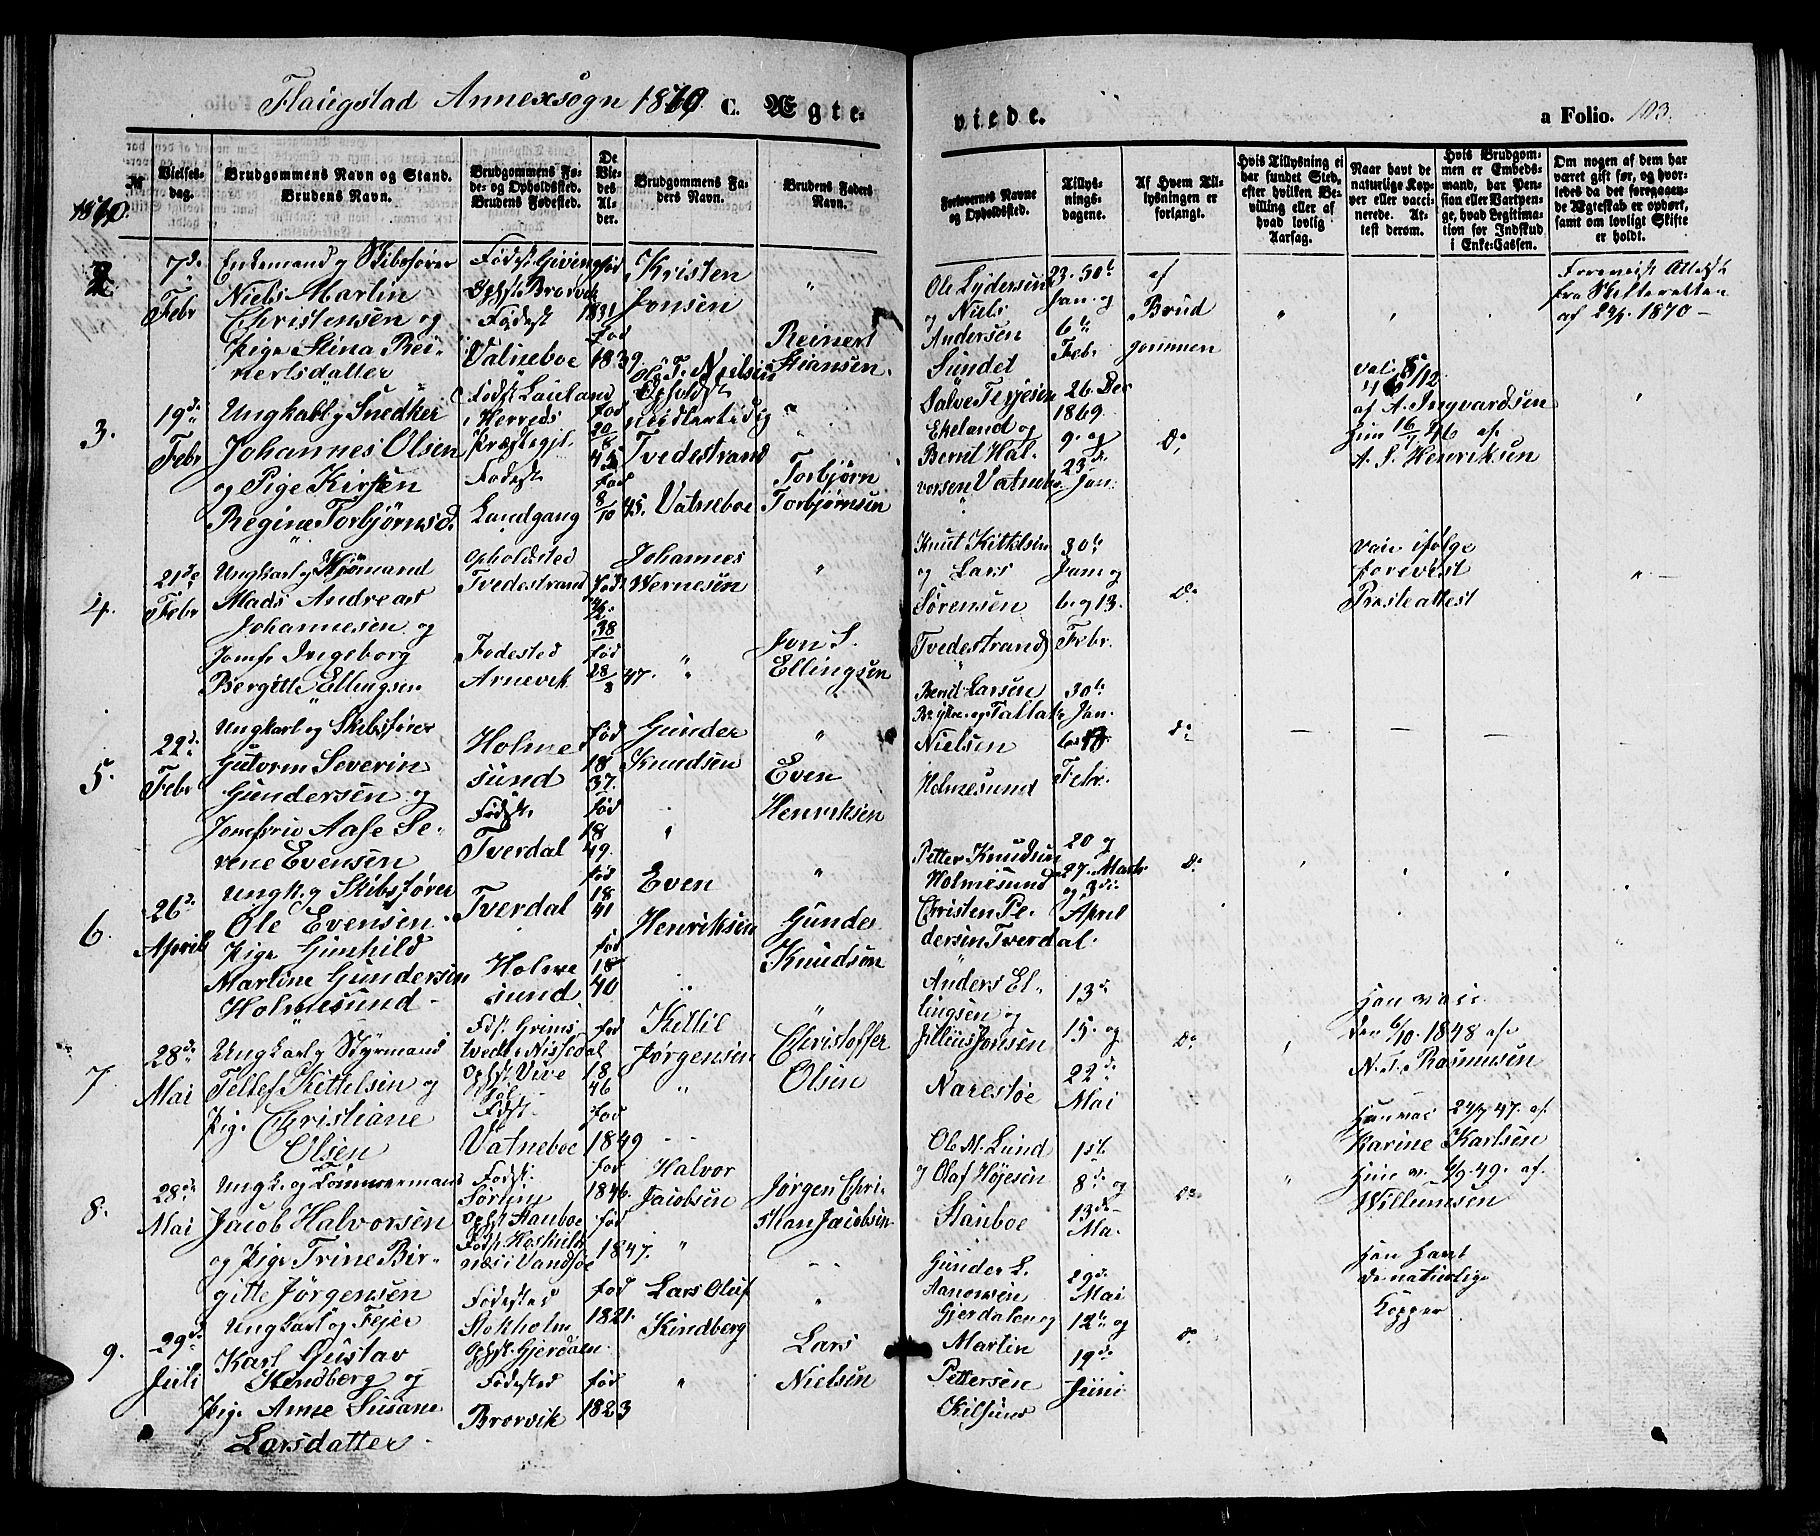 Flaugstad Annexsogn 1870. C. Ægte-
viede.
a Folio. 103.
№
Vielses-
dag.
Brudgommens Navn og Stand.
Brudens Navn.
Brudgommens Fø-
de- og Opholdssted.
Brudens Fødested.
De
Vie-
des
Al-
der.
Brudgommens Fa-
ders Navn.
Brudens Faders
Navn.
Forlovernes Navne
og Opholdssted.
Tillys-
nings-
dagene.
Af Hvem Til-
lysningen er
forlangt.
Hvis Tillysning ei
har fundet Sted,
efter hvilken Be-
villing eller af
hvad lovlig
Aarsag.
Naar havt de
naturlige Kop-
per eller vacci-
nerede. At-
test derom.
Hvis Brudgom-
men er Embeds-
mand, har Pen-
sion efter Vartpen-
ge, hvad Legitima-
tion for Indskud
i Enke-Cassen.
Om nogen af dem har
været gift før, og hvor-
ledes da det foregaaen-
de Ægteskab er ophørt,
samt om lovligt Skifte
er holdt.
1870.
2
7de
Febr
Enkemand og Skibsfører
Niels Martin
Christensen og
Pige Stina Rei-
nertsdatter
Fødest Giveng
Ophst Brorvik
Fødest
Vatneboe
fød
1831
fød
1839.
Kristen
Jonsen
"
Reinert
Stiansen.
Ole Lydersen
og Niels
Andersen
Sundet
23. 30te
Jan. og
6te
Febr.
af
Brud
gommen
"
Forevist Attest
fra Skifteretten
af 29/1 1870 -
3.
19de
Febr
Ungkarl og Snedker
Johannes Olsen
og Pige Kirsten
Regine Torbjørnsd.
Fødst Lauland
i Herreds
Præstegjl.
Fødest
Landgang
fød
20/8
45
fød
8/10
45.
Ole T. Nielsen
Opholdst
midlertidig
Tvedestrand
Vatneboe
"
Torbjørn
Torbjørnsen
Salve Terjesen
Ekeland og
Bernt Hal-
vorsen Vatnebo
26. Dec
1869.
9. og
23de
Jan.
Do
af A. Ingvardsen
Hun 16/7 46 af
A. S. Henriksen
4.
21de
Febr
Ungkarl og Sømand
Mads Andreas
Johannesen og
Jomfr Ingeborg
Bergitte Ellingsen
Opholdsted
Tvedestrand
Fødested
Arnevik
fød
38
fød
28/8
47.
Johannes
Wernesen
"
"
Jon S.
Ellingsen
Knut Kittelsen
og Lars
Sørensen
Tvedestrand
30te
Jan. og
6. og 13.
Febr.
Do
vacc. ifølge
forevist
Præsteattest
" -
5.
22de
Febr
Ungkarl og Skibsfører
Gutorm Severin
Gundersen og
Jomfru Aase Se-
rene Evensen
Holme
sund
Fødst.
Tverdal
fød
18
37.
fød
18
49.
Gunder
Knudsen
"
"
Even
Henriksen
Bernt Larsen
Tallak
Nielsen
Holmesund
30te
Jan.
6 og 13
Febr.
Do
6.
26de
April
Ungk. og Skibsfører
Ole Evensen
Pige Gunhild
Martine Gundersen
Holmesund -
Tverdal
Holme
sund
fød
18
41
fød
18
40
Even
Henriksen
"
Gunder
Knudsøn
Petter Knudsen
Holmesund
Christen Pe-
dersen Tverdal.
20 og
27. Marts
og 3die
April
Do
7
28de
Mai
Ungkarl og Styrmand
Tellef Kittelsen og
Pige Christiane
Olsen
Fødst. Grims
tvedt i Nissedal
Ophst Vive
Fødst.
Vatneboe
fød
18
46
fød
1849
Kittil
Jørgensen
"
"
Christoffer
Olsen
Anders El-
lingsen og
Julius Jonsen
Narestøe
13de
15. og
22de
Mai
Do
Han vacc.
den 6/10. 1848 af
N. T. Rasmusen
Hun vac 24/7 47. af
Karine Karlsen
8.
28de
Mai
Ungk. og Tømmermand
Jacob Halvorsen
og Pige Trine Bir-
gitte Jørgensen
Fødst.
Ophst Stauboe
Fødst Hoskuld
næs i Vandsøe
fød
1846.
fød
1847.
Halvor
Jacobsen
"
Jørgen Chri-
stian Jacobsen
Ole M. Lund
og Olaf Høyesen
Stauboe
1ste
8de og
13de
Mai
Do
"
Hun v. 6/9. 49. af.
Willumsen
9.
29de
Juli
Ungkarl og Fejer
Karl Gustav
Kindberg og
Pige Anne Susane
Larsdatter
Fødested
Stokholm
Ophst Gjerdalen.
Fødested
Brorvik
fød
1821.
fød
1823
Lars Oluf
Kindberg
"
"
Lars
Nielsen
Gunder L.
Aanonsen
Gjerdalen og
Martin
Pettersen
Kilsund
29de
Mai
12te og
19de
Juni
do
Han havt
de naturlige
Kopper